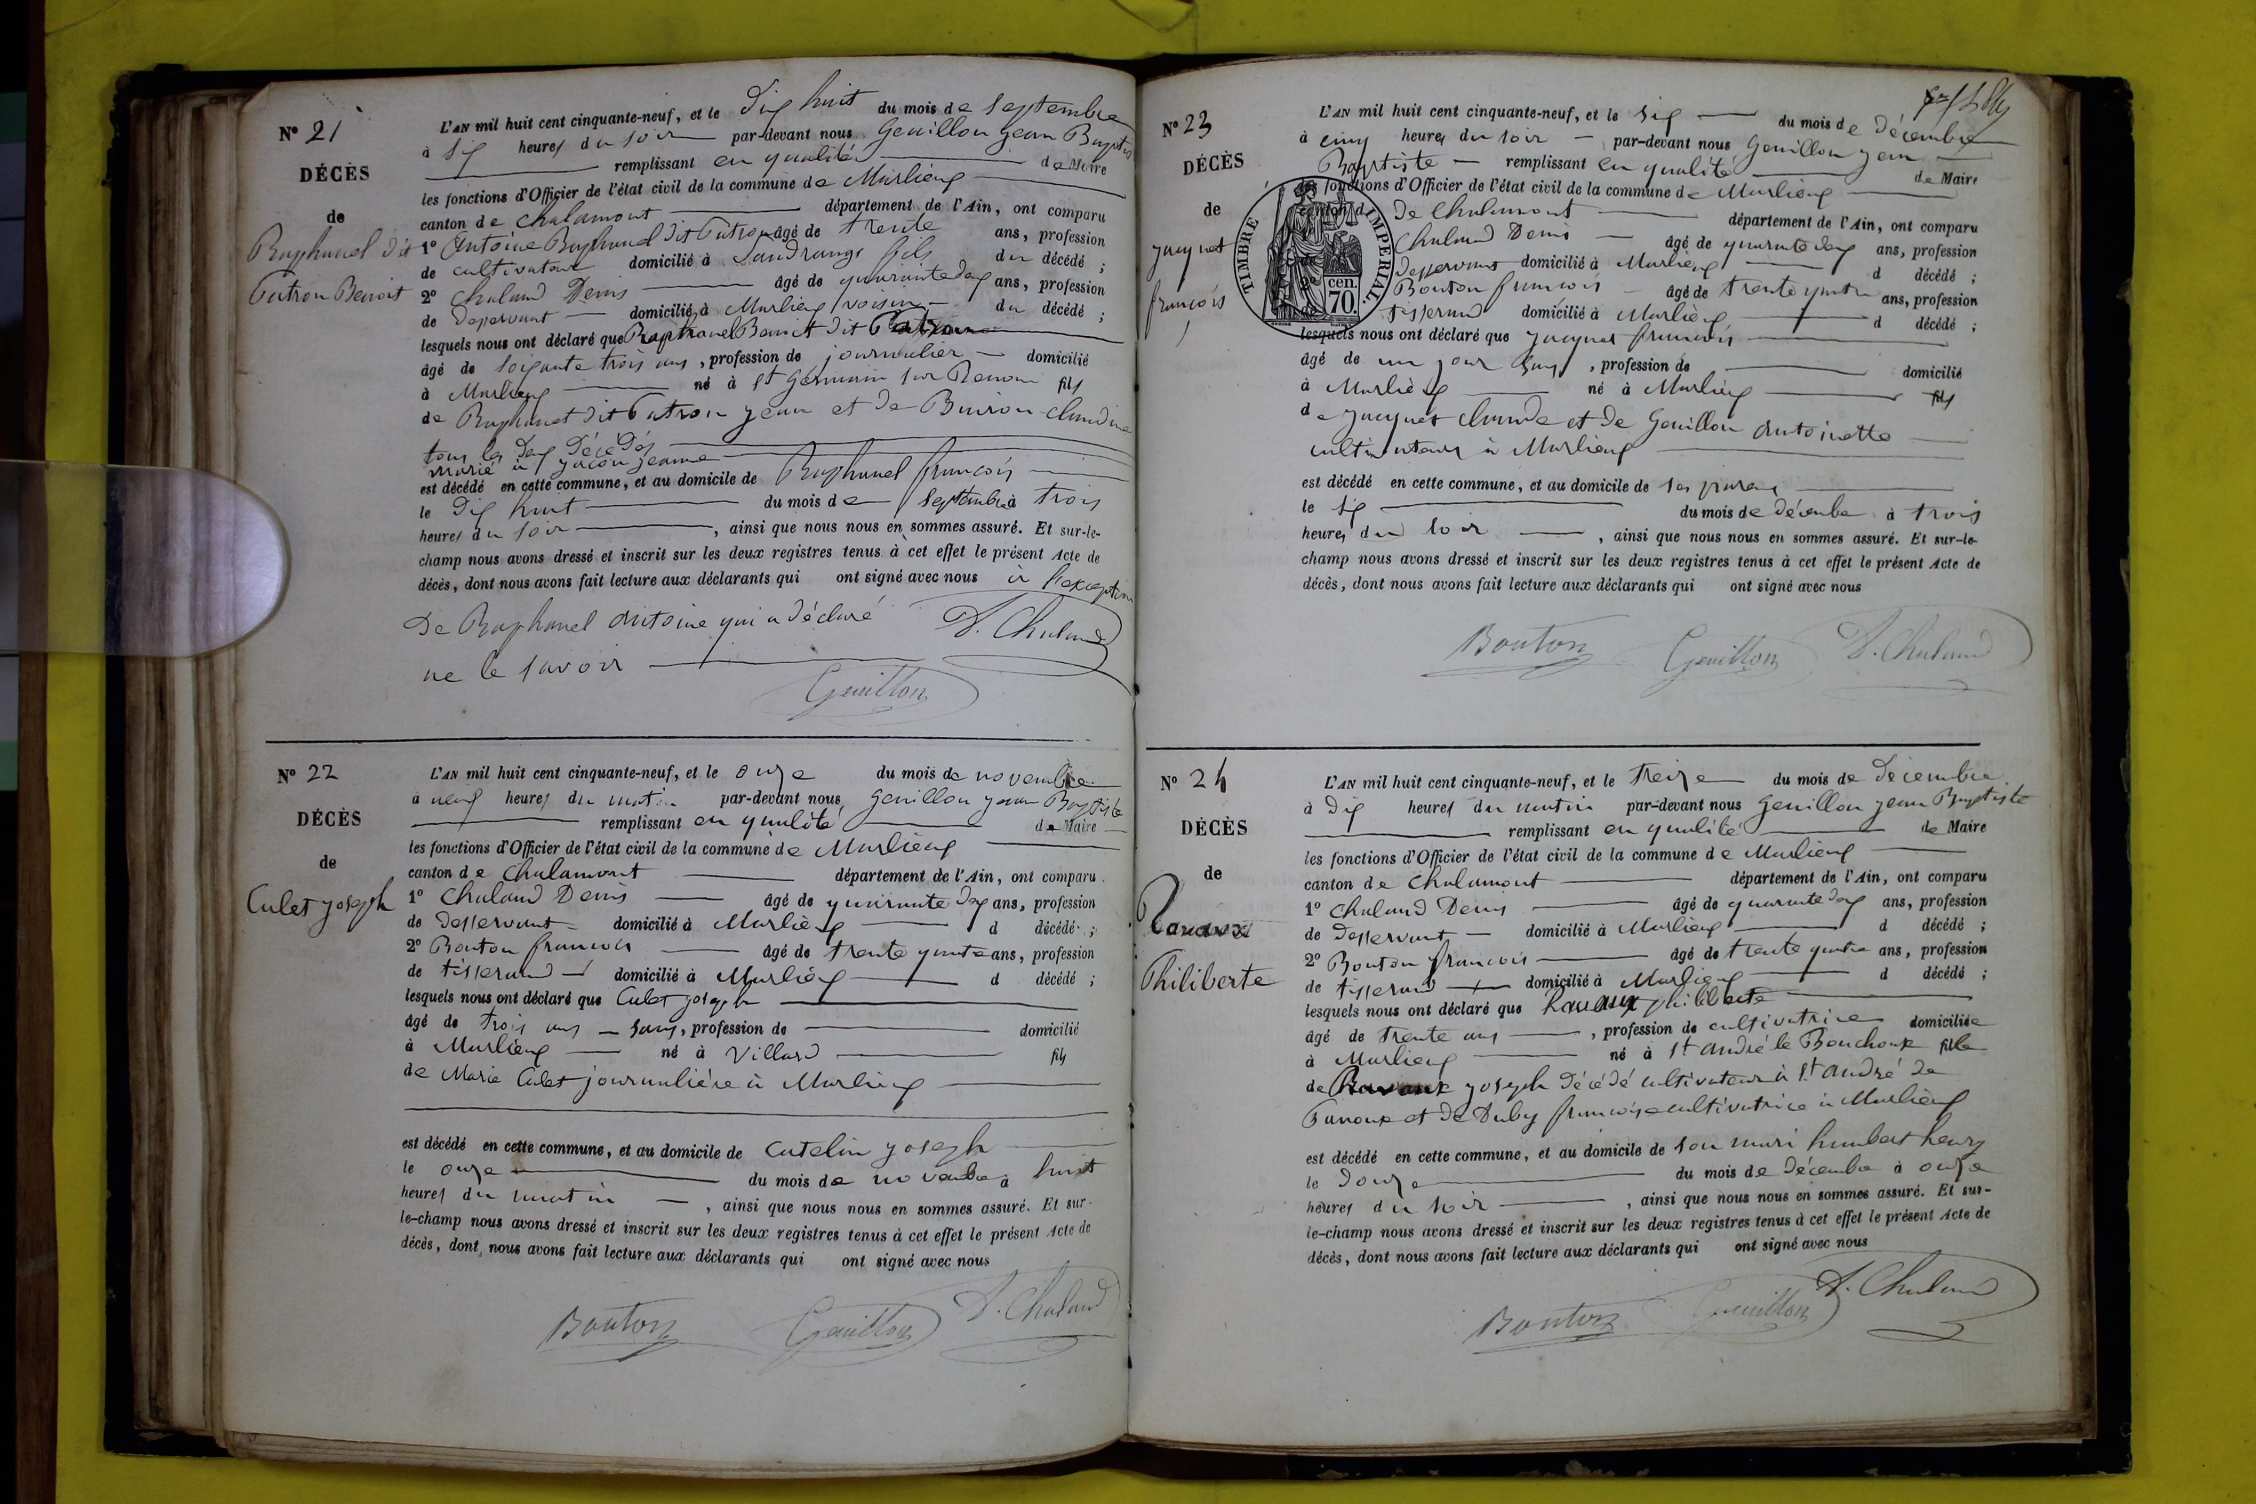 N° 21
DÉCÈS
de
Raphanel dit
Patron Benoit
L'AN mil huit cent cinquante-neuf, et le dix huit du mois de septembre
à six heures du soir par-devant nous Genillon jean Baptiste
remplissant en qualité de Maire
les fonctions d'Officier de l'état civil de la commune de Marlieux
canton de chalamont département de l'Ain, ont comparu
1° Antoine Raphanel dit Patron âgé de trente ans, profession
de cultivateur domicilié à Sandrans fils du décédé ;
2° Chaland Denis âgé de quarante deux ans, profession
de desservant domicilié à Marlieux voisin du décédé ;
lesquels nous ont déclaré que Raphanel Benoit dit Patron
âgé de soixante trois ans, profession de journalier domicilié
à Marlieux né à St Germain sur Renom fils
de Raphanel dit Patron jean et de Buiron claudine
tous les deux décédés
marié à jeanne
est décédé en cette commune, et au domicile de Raphanel francois
le dix huit du mois de septembre à trois
heures du soir, ainsi que nous nous en sommes assuré. Et sur-le-
champ nous avons dressé et inscrit sur les deux registres tenus à cet effet le présent Acte de
décès, dont nous avons fait lecture aux déclarants qui ont signé avec nous à l'exception
de Raphanel antoine qui a déclaré D. Chaland
ne le savoir
Genillon
N° 22
DÉCÈS
de
Culet joseph
L'AN mil huit cent cinquante-neuf, et le onze du mois de novembre
à neuf heures du matin par-devant nous, Genillon jean Baptiste
remplissant en qualité de Maire
les fonctions d'Officier de l'état civil de la commune de Marlieux
canton de Chalamont département de l'Ain, ont comparu
1° Chaland Denis âgé de quarante deux ans, profession
de desservant domicilié à Marlieux d décédé ;
2° Bouton francois âgé de trente quatre ans, profession
de tisserand domicilié à Marlieux d décédé ;
lesquels nous ont déclaré que Culet joseph
âgé de trois ans sans, profession de domicilié
à Marlieux né à Villard fils
de Marie Culet journalière à Marlieux
est décédé en cette commune, et au domicile de Catelin joseph
le onze du mois de novembre à huit
heures du matin, ainsi que nous nous en sommes assuré. Et sur-
le-champ nous avons dressé et inscrit sur les deux registres tenus à cet effet le présent Acte de
décès, dont nous avons fait lecture aux déclarants qui ont signé avec nous
Bouton Genillon D. Chaland
N° 23
DÉCÈS
de
jacquet
francois
TIMBRE IMPERIAL.
cen.
70.
L'AN mil huit cent cinquante-neuf, et le six du mois de décembre
à cinq heures du soir par-devant nous Genillon jean
Baptiste remplissant en qualité de Maire
les fonctions d'Officier de l'état civil de la commune de Marlieux
canton d de Chalamont département de l'Ain, ont comparu
Chaland Denis âgé de quarante deux ans, profession
desservant domicilié à Marlieux d décédé ;
2° Bouton francois âgé de trente quatre ans, profession
tisserand domicilié à Marlieux d décédé ;
lesquels nous ont déclaré que jacquet francois
âgé de un jour sans, profession de domicilié
à Marlieux né à Marlieux fils
de jacquet claude et de Genillon antoinette
cultivateurs à Marlieux
est décédé en cette commune, et au domicile de ses parens
le six du mois de décembre à trois
heures du soir, ainsi que nous nous en sommes assuré. Et sur-le-
champ nous avons dressé et inscrit sur les deux registres tenus à cet effet le présent Acte de
décès, dont nous avons fait lecture aux déclarants qui ont signé avec nous
Bouton Genillon D. Chaland
N° 24
DÉCÈS
de
Ravaux
Philiberte
L'AN mil huit cent cinquante-neuf, et le treize du mois de décembre
à dix heures du matin par-devant nous Genillon jean Baptiste
remplissant en qualité de Maire
les fonctions d'Officier de l'état civil de la commune de Marlieux
canton de Chalamont département de l'Ain, ont comparu
1° Chaland Denis âgé de quarante deux ans, profession
de desservant domicilié à Marlieux d décédé ;
2° Bouton francois âgé de trente quatre ans, profession
de tisserand domicilié à Marlieux d décédé ;
lesquels nous ont déclaré que Ravaux philiberte
âgé de trente ans, profession de cultivatrice domiciliée
à Marlieux né à St andré le Bouchoux fille
de Ravaux joseph décédé cultivateur à St andré de
Panoux et de Duby francoise cultivatrice à Marlieux
est décédé en cette commune, et au domicile de son mari humbert henry
le douze du mois de décembre à onze
heures du soir, ainsi que nous nous en sommes assuré. Et sur-
le-champ nous avons dressé et inscrit sur les deux registres tenus à cet effet le présent Acte de
décès, dont nous avons fait lecture aux déclarants qui ont signé avec nous
Bouton Genillon D. Chaland